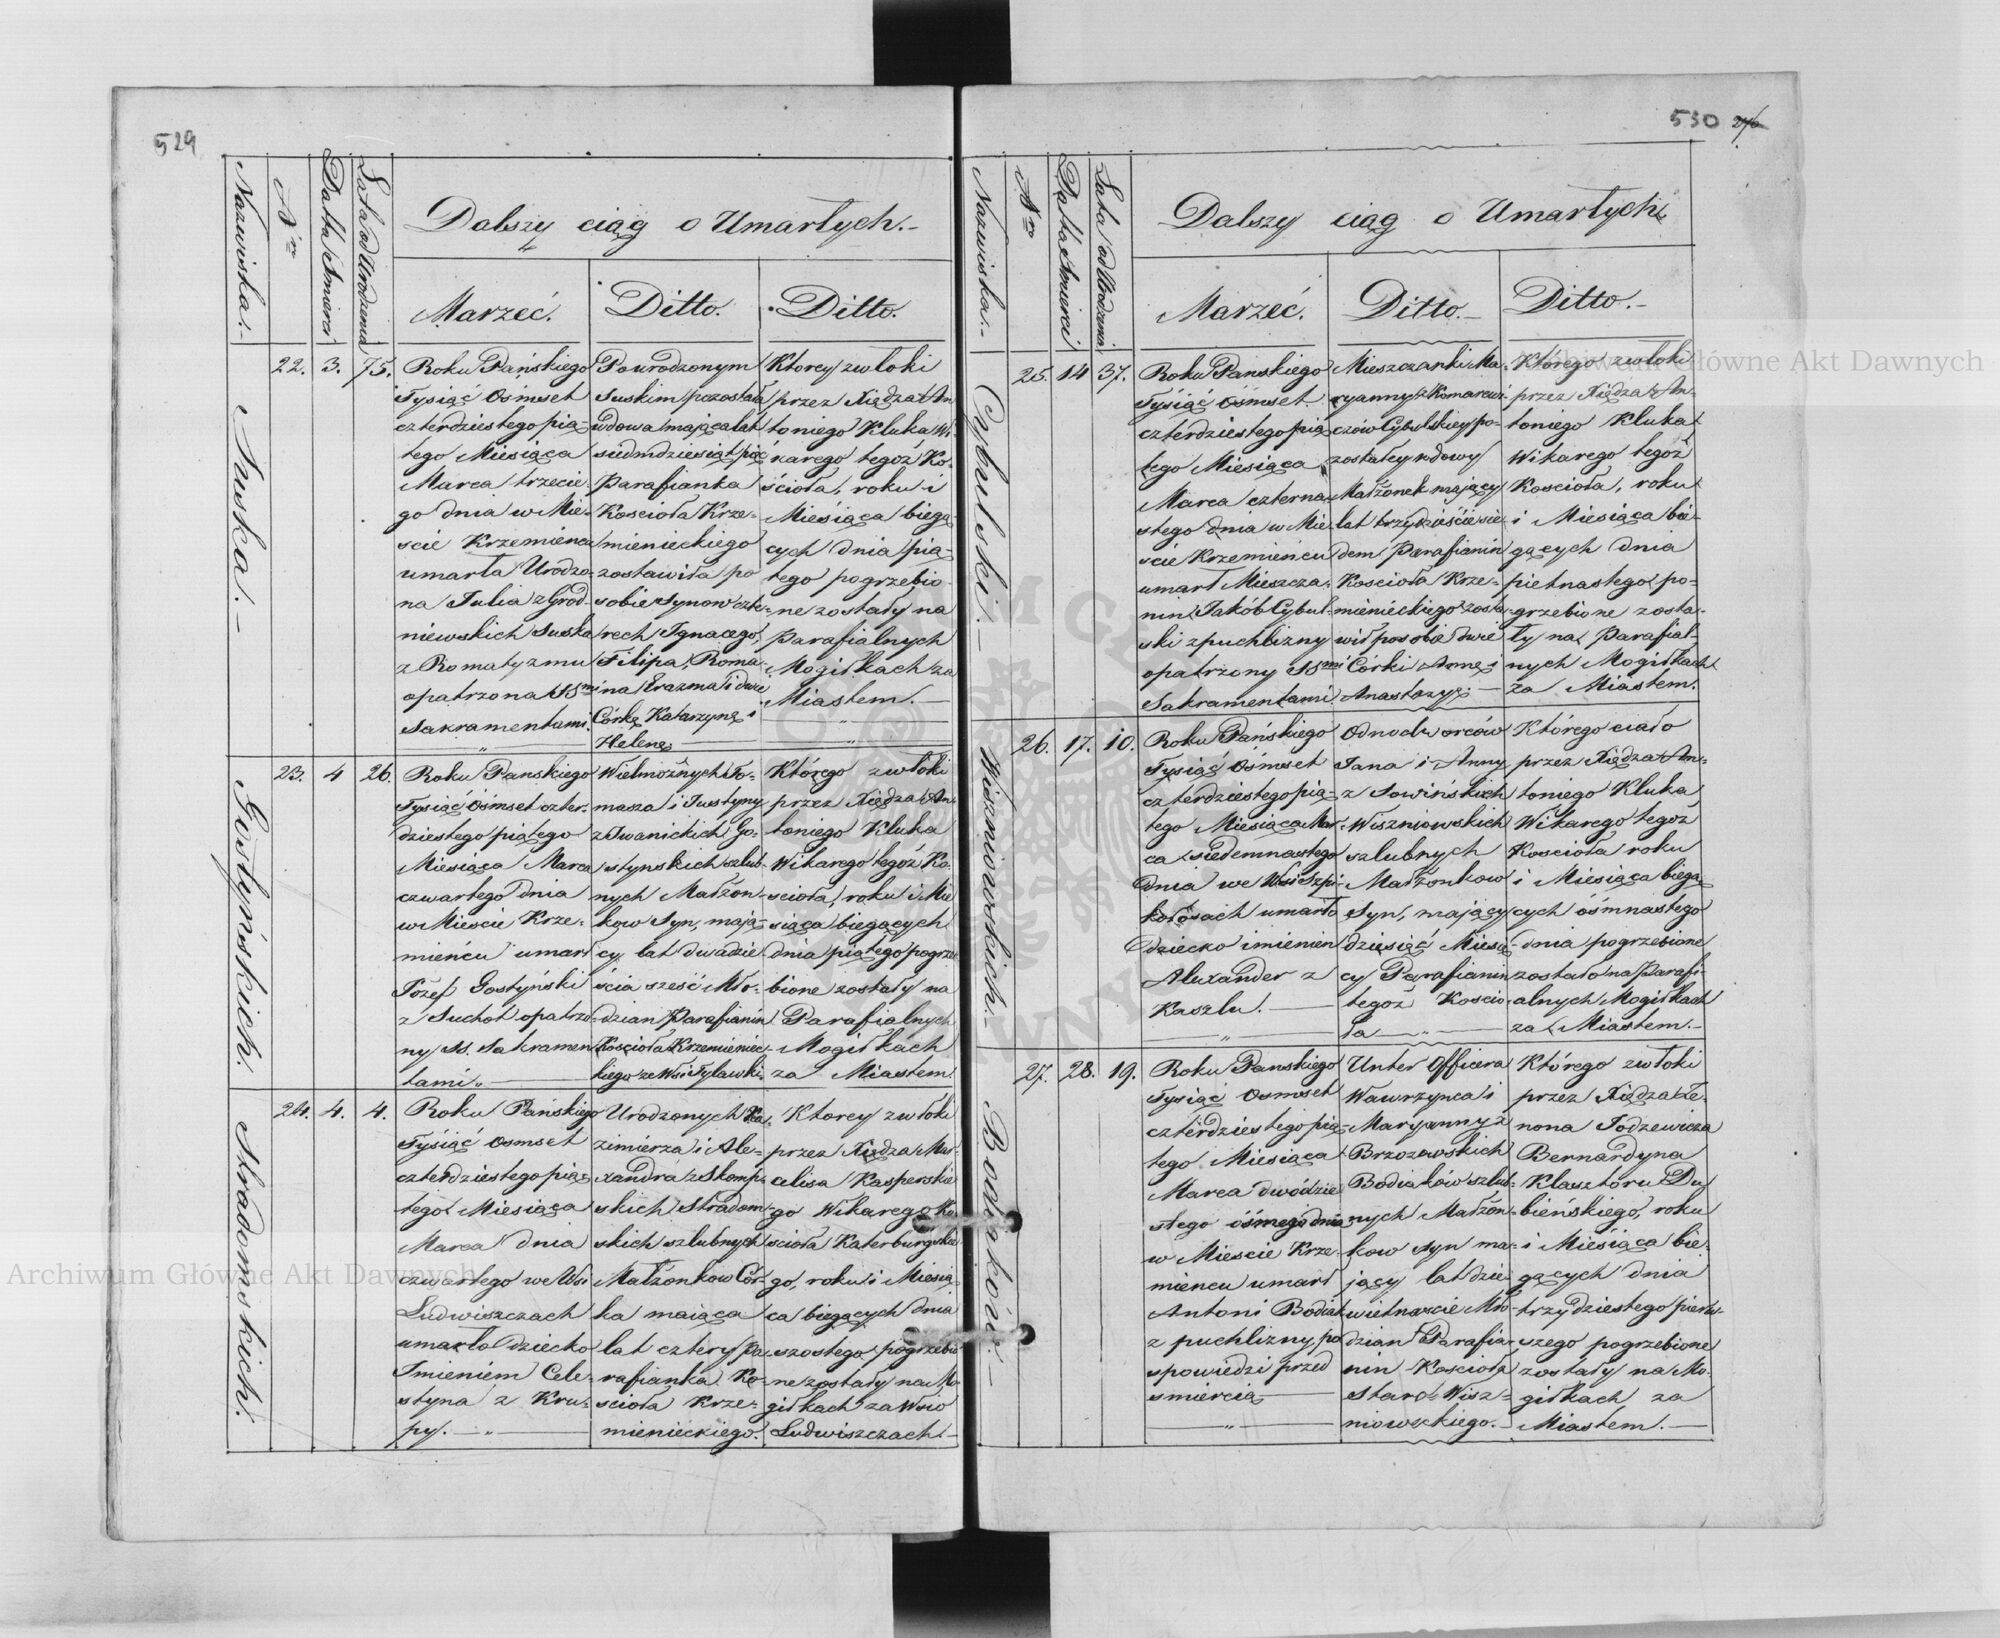 529
Nazwiska.
Nro
Datta Smierci
Lata od Urodzenia
Dalszy ciąg o Umarłych.
Marzeć.
Ditto.
Ditto.
Suska.
22.
3.
75.
Roku Pańskiego
Tysiąć Ośmset
czterdziestego pią-
tego Miesiąca
Marca trzecie-
go dnia w Mie-
scie Krzemieńcu
umarła Urodzo-
na Julia z Grod-
niewskich Suska
z Romatyzmu
opatrzona SSmi
Sakramentami
Po urodzonym
Suskim pozostała
wdowa mająca lat
siedmdziesiąt pięć
Parafianka
Kościoła Krze-
mienieckiego
zostawiła po
sobie Synow czte-
rech Ignacego,
Filipa, Roma-
na Erazma i dwie
Córkę Katarzynę i
Helenę
Ktorey zwłoki
przez Xiędza An-
toniego Kluka Wi-
karego tegoz Ko-
ścioła, roku i
Miesiąca biegą-
cych dnia pią-
tego pogrzebio-
ne zostały na
Parafialnych
Mogiłkach za
Miastem.
Gostyńskich.
23.
4
26.
Roku Panskiego
Tysiąć Ośmset czter-
dziestego piątego
Miesiąca Marca
czwartego dnia
w Miescie Krze-
mieńcu umarł
Józef Gostyński
z Suchot opatrzo-
ny SS. Sakramen-
tami
Wielmożnych To-
masza i Justyny
z Iwanickich Go-
stynskich szlub-
nych Małżon-
kow Syn, mają-
cy lat dwadzie-
ścia sześć Mło-
dzian Parafianin
Kościoła Krzemieniec-
kiego ze Wsi Tylawki
Którego zwłoki
przez Xiędza An-
toniego Kluka
Wikarego tegoż Ko-
scioła, roku i Mie-
siąca biegących
dnia piątego pogrze-
bione zostały na
Parafialnych
Mogiłkach
za Miastem
Stradomskich.
24.
4.
4.
Roku Pańskiego
Tysiąć Osmset
czterdziestego pią-
tego Miesiąca
Marca dnia
czwartego we Wsi
Ludwiszczach
umarło dziecko
Imieniem Cele-
styna z Kru-
py.
Urodzonych Ka-
zimierza i Ale-
xandra z Skomp-
skich Stradom-
skich szlubnych
Małżonkow Cór-
ka maiąca
lat cztery Pa-
rafianka Ko-
scioła Krze-
mienieckiego.
Ktorey zwłoki
przez Xiędza Mar-
celisa Kasperskie-
go Wikarego Ko-
scioła Katerburgskie-
go, roku i Miesią-
ca biegących dnia
szostego pogrzebio-
ne zostały na Mo-
giłkach za Wsią
Ludwiszczach.
530
Nazwiska.
Nro
Datta Smierci
Lata od Urodzenia
Dalszy ciąg o Umarłych
Marzeć.
Ditto.
Ditto.
Cybulski.
25.
14
37.
Roku Panskiego
Tysiąć ośmset
czterdziestego pią-
tego Miesiąca
Marca czterna-
stego dnia w Mie-
ście Krzemieńcu
umarł Mieszcza-
nin Jakób Cybul-
ski z puchlizny
opatrzony SSmi
Sakramentami
Mieszczanki Ma-
ryanny z Komarewi-
czów Cybulskiey po-
zostałey wdowy
Małżonek mający
lat trzydzieście sie-
dem Parafianin
Kościoła Krze-
mienieckiego zosta-
wił po sobie dwie
Córki Annę i
Anastazyę.
Którego zwłoki
przez Xiędza An-
toniego Kluka
Wikarego tegoż
Kościoła, roku
i Miesiąca bie-
gących dnia
pietnastego po-
grzebione zosta-
ły na Parafial-
nych Mogiłkach
za Miastem.
Wiszniowskich.
26.
17.
10.
Roku Pańskiego
Tysiąć Ośmset
czterdziestego pią-
tego Miesiąca Mar-
ca siedemnastego
dnia we Wsi Szpi-
kołosach umarło
dziecko imieniem
Alexander z
Kaszlu.
Odnodworców
Jana i Anny
z Sowińskich
Wiszniowskich
szlubnych
Małżonkow
Syn, mający
dziesiąć Miesię-
cy Parafianin
tegoż Koscio-
ła
Którego ciało
przez Xiędza An-
toniego Kluka
Wikarego tegoz
Koscioła roku
i Miesiąca biegą-
cych ośmnastego
dnia pogrzebione
zostało na Parafi-
alnych Mogiłkach
za Miastem.
Bodiaków.
27.
28.
19.
Roku Panskiego
Tysiąć Osmset
czterdziestego pią-
tego Miesiąca
Marca dwódzie-
stego ósmego dnia
w Miescie Krze-
mieńcu umarł
Antoni Bodiak
z puchlizny, po
spowiedzi przed
smiercią
Unter Officera
Wawrzynca i
Maryanny z
Brzozowskich
Bodiaków szlub-
nych Małżon-
kow Syn ma-
jący lat dzie-
wietnascie Mło-
dzian Parafia-
nin Koscioła
Staro-Wisz-
niowskiego.
Którego zwłoki
przez Xiędza Ze-
nona Jodzewicza
Bernardyna
Klasztoru Du-
bieńskiego, roku
i Miesiąca bie-
gących dnia
trzydziestego pierw-
szego pogrzebione
zostały na Mo-
giłkach za
Miastem.
Archiwum Główne Akt Dawnych
Archiwum Główne Akt Dawnych